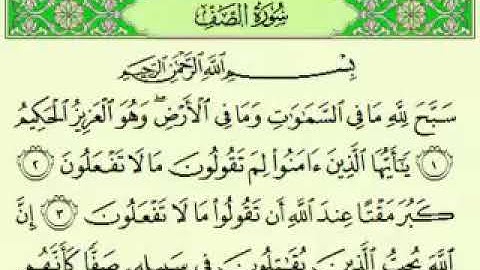 سُورَةُ الصَّفِّ
بِسْمِ اللَّهِ الرَّحْمَٰنِ الرَّحِيمِ
سَبَّحَ لِلَّهِ مَا فِي السَّمَاوَاتِ وَمَا فِي الْأَرْضِ ۖ وَهُوَ الْعَزِيزُ الْحَكِيمُ
﴿١﴾ يَٰٓأَيُّهَا الَّذِينَ ءَامَنُوا۟ لِمَ تَقُولُونَ مَا لَا تَفْعَلُونَ ﴿٢﴾
كَبُرَ مَقْتًا عِندَ اللَّهِ أَن تَقُولُوا۟ مَا لَا تَفْعَلُونَ ﴿٣﴾ إِنَّ
اللَّهَ يُحِبُّ الَّذِينَ يُقَٰتِلُونَ فِي سَبِيلِهِ صَفًّا كَأَنَّهُم